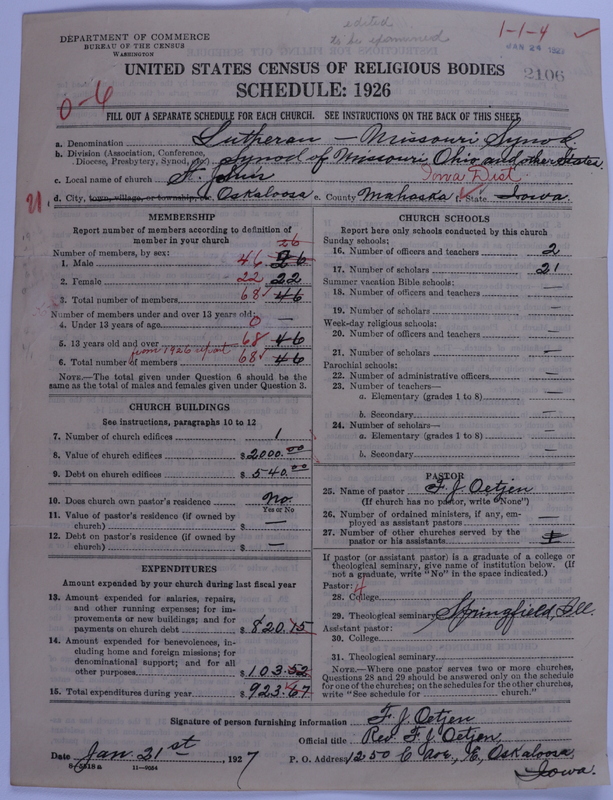 edited
to be examined
1-1-4 ✓
JAN 24 1927
2106
DEPARTMENT OF COMMERCE
BUREAU OF THE CENSUS
WASHINGTON
UNITED STATES CENSUS OF RELIGIOUS BODIES
SCHEDULE: 1926
0-6
FILL OUT A SEPARATE SCHEDULE FOR EACH CHURCH. SEE INSTRUCTIONS ON THE BACK OF THIS SHEET.
a. Denomination Lutheran – Missouri Synod
b. Division (Association, Conference, Diocese, Presbytery, Synod, etc.) Synod of Missouri, Ohio and other States.
c. Local name of church St. John Iowa Dist.
21. d. City, town, village, or township, etc. Oskaloosa e. County Mahaska f. State Iowa.
MEMBERSHIP
Report number of members according to definition of
member in your church
Number of members, by sex: 26
1. Male 46
2. Female 22 22
3. Total number of members 68 ✓ 46
Number of members under and over 13 years old:
4. Under 13 years of age 0 —
5. 13 years old and over 68 ✓ 46
from 1926 report
6. Total number of members 68 ✓ 46
NOTE.—The total given under Question 6 should be the
same as the total of males and females given under Question 3.
CHURCH BUILDINGS
See instructions, paragraphs 10 to 12
7. Number of church edifices 1
8. Value of church edifices $2000.00
9. Debt on church edifices $540.00
10. Does church own pastor's residence No.
Yes or No
11. Value of pastor's residence (if owned by
church) $ —
12. Debt on pastor's residence (if owned by
church) $ —
EXPENDITURES
Amount expended by your church during last fiscal year
13. Amount expended for salaries, repairs,
and other running expenses; for im-
provements or new buildings; and for
payments on church debt $820.15
14. Amount expended for benevolences, in-
cluding home and foreign missions; for
denominational support; and for all
other purposes $103.52
15. Total expenditures during year $923.67
CHURCH SCHOOLS
Report here only schools conducted by this church
Sunday schools:
16. Number of officers and teachers 2
17. Number of scholars 21
Summer vacation Bible schools:
18. Number of officers and teachers —
19. Number of scholars —
Week-day religious schools:
20. Number of officers and teachers —
21. Number of scholars —
Parochial schools:
22. Number of administrative officers —
23. Number of teachers—
a. Elementary (grades 1 to 8) —
b. Secondary —
24. Number of scholars—
a. Elementary (grades 1 to 8) —
b. Secondary —
PASTOR
25. Name of pastor F. J. Oetjen
(If church has no pastor, write "None")
26. Number of ordained ministers, if any, em-
ployed as assistant pastors —
27. Number of other churches served by the
pastor or his assistants
If pastor (or assistant pastor) is a graduate of a college or
theological seminary, give name of institution below. (If
not a graduate, write "No" in the space indicated.)
Pastor: 4
28. College
29. Theological seminary Springfield, Ill.
Assistant pastor:
30. College
31. Theological seminary
NOTE.—Where one pastor serves two or more churches,
Questions 28 and 29 should be answered only on the schedule
for one of the churches; on the schedules for the other churches,
write "See schedule for church."
Signature of person furnishing information F. J. Oetjen
Official title Rev. F. J. Oetjen
Date Jan. 21st, 1927 P. O. Address 1250 C Ave., E., Oskaloosa
Iowa.
8-5318 a 11—9054